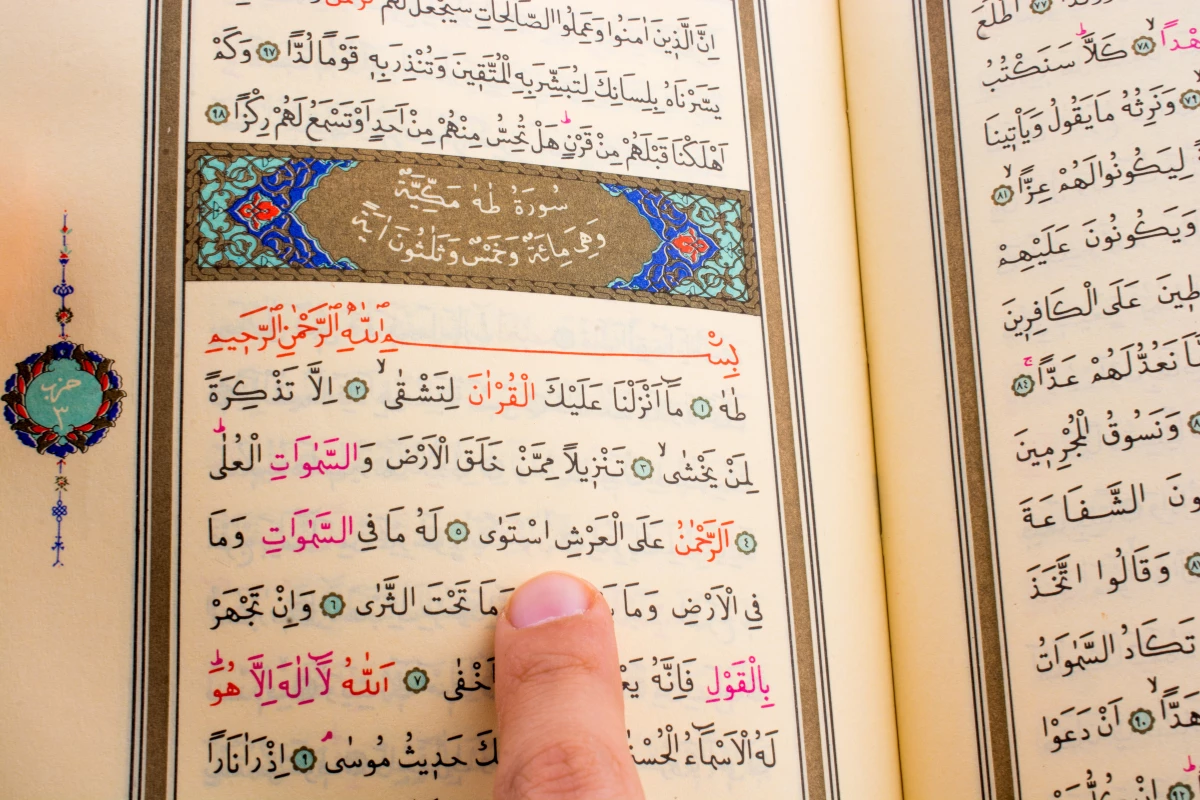 اِنَّ الَّذِينَ اٰمَنُوا وَعَمِلُوا الصَّالِحَاتِ سَيَجْعَلُ لَهُمُ
يَسَّرْنَاهُ بِلِسَانِكَ لِتُبَشِّرَ بِهِ الْمُتَّقِينَ وَتُنْذِرَ بِهِ قَوْمًا لُدًّا ٩٧ وَكَمْ
اَهْلَكْنَا قَبْلَهُمْ مِنْ قَرْنٍ هَلْ تُحِسُّ مِنْهُمْ مِنْ اَحَدٍ اَوْ تَسْمَعُ لَهُمْ رِكْزًا ٩٨
سُورَةُ طٰهٰ مَكِّيَّةٌ
وَهِيَ مِائَةٌ وَخَمْسٌ وَثَلٰثُونَ اٰيَةً
بِسْمِ اللّٰهِ الرَّحْمٰنِ الرَّحِيمِ
طٰهٰ ١ مَٓا اَنْزَلْنَا عَلَيْكَ الْقُرْاٰنَ لِتَشْقٰى ٢ اِلَّا تَذْكِرَةً
لِمَنْ يَخْشٰى ٣ تَنْزِيلًا مِمَّنْ خَلَقَ الْاَرْضَ وَالسَّمٰوَاتِ الْعُلٰى
٤ اَلرَّحْمٰنُ عَلَى الْعَرْشِ اسْتَوٰى ٥ لَهُ مَا فِي السَّمٰوَاتِ وَمَا
فِي الْاَرْضِ وَمَا وَمَا تَحْتَ الثَّرٰى ٦ وَاِنْ تَجْهَرْ
بِالْقَوْلِ فَاِنَّهُ اَخْفٰى ٧ اَللّٰهُ لَٓا اِلٰهَ اِلَّا هُوَ
لَهُ الْاَسْمَٓاءُ حَدِيثُ مُوسٰى ٩ اِذْ رَاٰ نَارًا
حزب
٣
٧٧ اَطَّلَعَ
٧٨ كَلَّا سَنَكْتُبُ
٧٩ وَنَرِثُهُ مَا يَقُولُ وَيَأْتِينَا
لِيَكُونُوا لَهُمْ عِزًّا ٨١
وَيَكُونُونَ عَلَيْهِمْ
عَلَى الْكَافِرِينَ
نَعُدُّ لَهُمْ عَدًّا ٨٤
وَنَسُوقُ الْمُجْرِمِينَ
الشَّفَاعَةَ
وَقَالُوا اتَّخَذَ
تَكَادُ السَّمٰوَاتُ
هَدًّا ٩٠ اَنْ دَعَوْا
٩٢